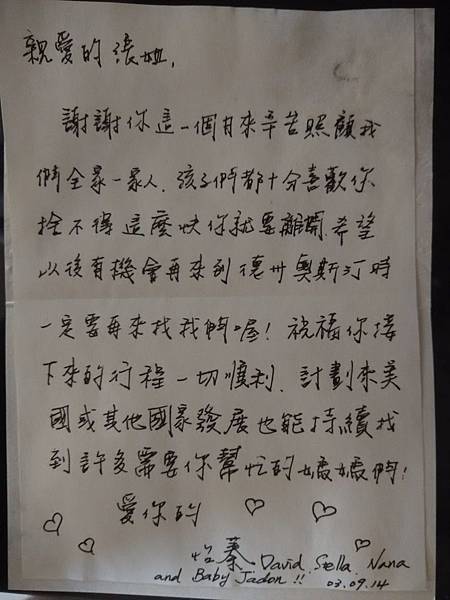 親愛的張姐,
謝謝你這一個月來辛苦照顧我
們全家一家人. 孩子們都十分喜歡你
捨不得這麼快你就要離開. 希望
以後有機會再來到德州奧斯汀時
一定要再來找我們喔! 祝福你接
下來的行程一切順利. 計劃來美
國或其他國家發展也能持續找
到許多需要你幫忙的媽媽們!
愛你的
怡蓁. David. Stella. Nana
and Baby Jadon !! 03.09.14